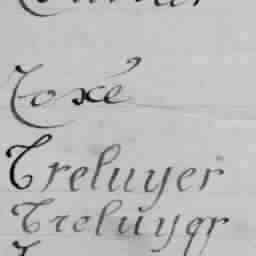 Toxé
Treluyer
Treluyer